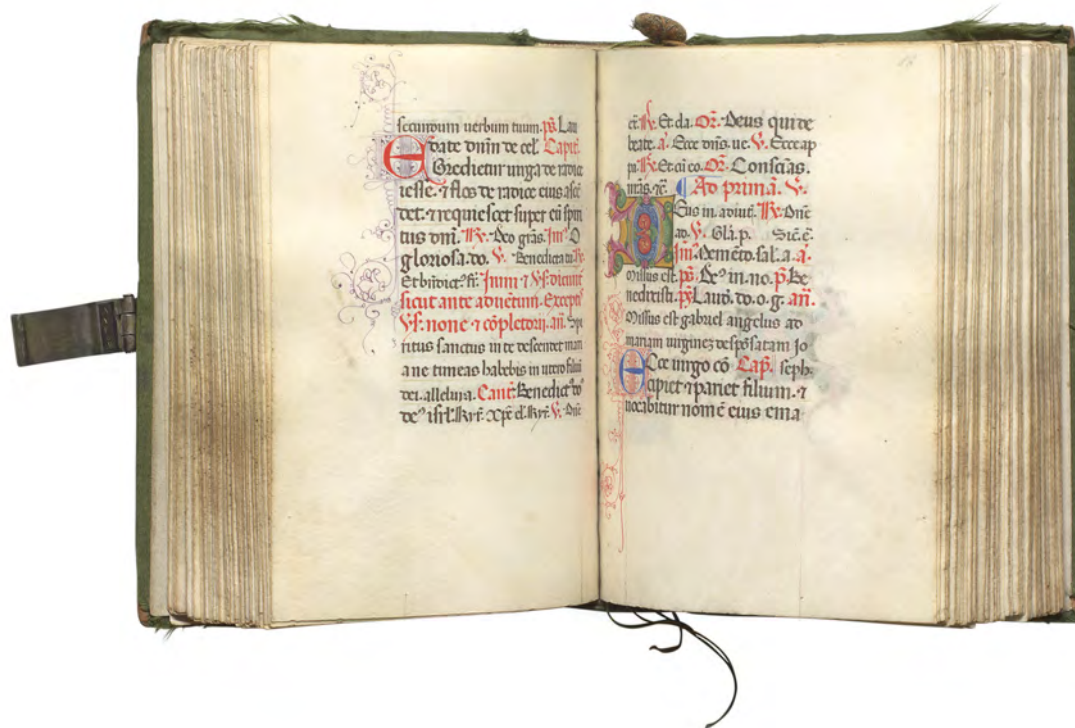 secundum uerbum tuum. ps̄. Lau
date dnm̄ de cel̄. Capit̄.
EGredietur uirga de radice
iesse. ⁊ flos de radice eius ascē
det. ⁊ requiescet super eū spiri
tus dnī. ℟. Deo grās. Im̄ꝰ O
gloriosa. do. ℣. Benedicta tu. ℟.
Et bn̄dictꝰ fr̄. Imni ⁊ ℣s. dicunt̄
sicut ante aduētum. Exceptis
℣s. none ⁊ cōpletorii. an̄. Spi
ritus sanctus in te descendet mari
a ne timeas habebis in utero filiū
dei. alleluya. Cant̄. Benedictꝰ doꝰ
deꝰ isrl̄. kyr̄. Xp̄e el̄. kyr̄. ℣. Dn̄e
ex̄. ℟. Et cla. Or̄. Deus qui de
beate. a᷒. Ecce dnīs. ue. ℣. Ecce ap
pa. ℟. Et cū eo. Or̄. Conscīas.
nr̄as. ⁊c̄. Ad primā. ℣.
DEus in. adiut̄. ℟. Dn̄e
ad. ℣. Glā. p. Sic̄. e.
Im̄. Memēto. sal. a. a᷒.
Missus est. ps̄. Deꝰ in. no. p̄. Be
nedixisti. ps̄. Laud̄. do. o. g. an̄.
Missus est gabriel angelus ad
mariam uirginez despōsatam Jo
ECce uirgo cō Cap̄. seph.
cipiet ⁊ pariet filium. ⁊
uocabitur nomē eius ema